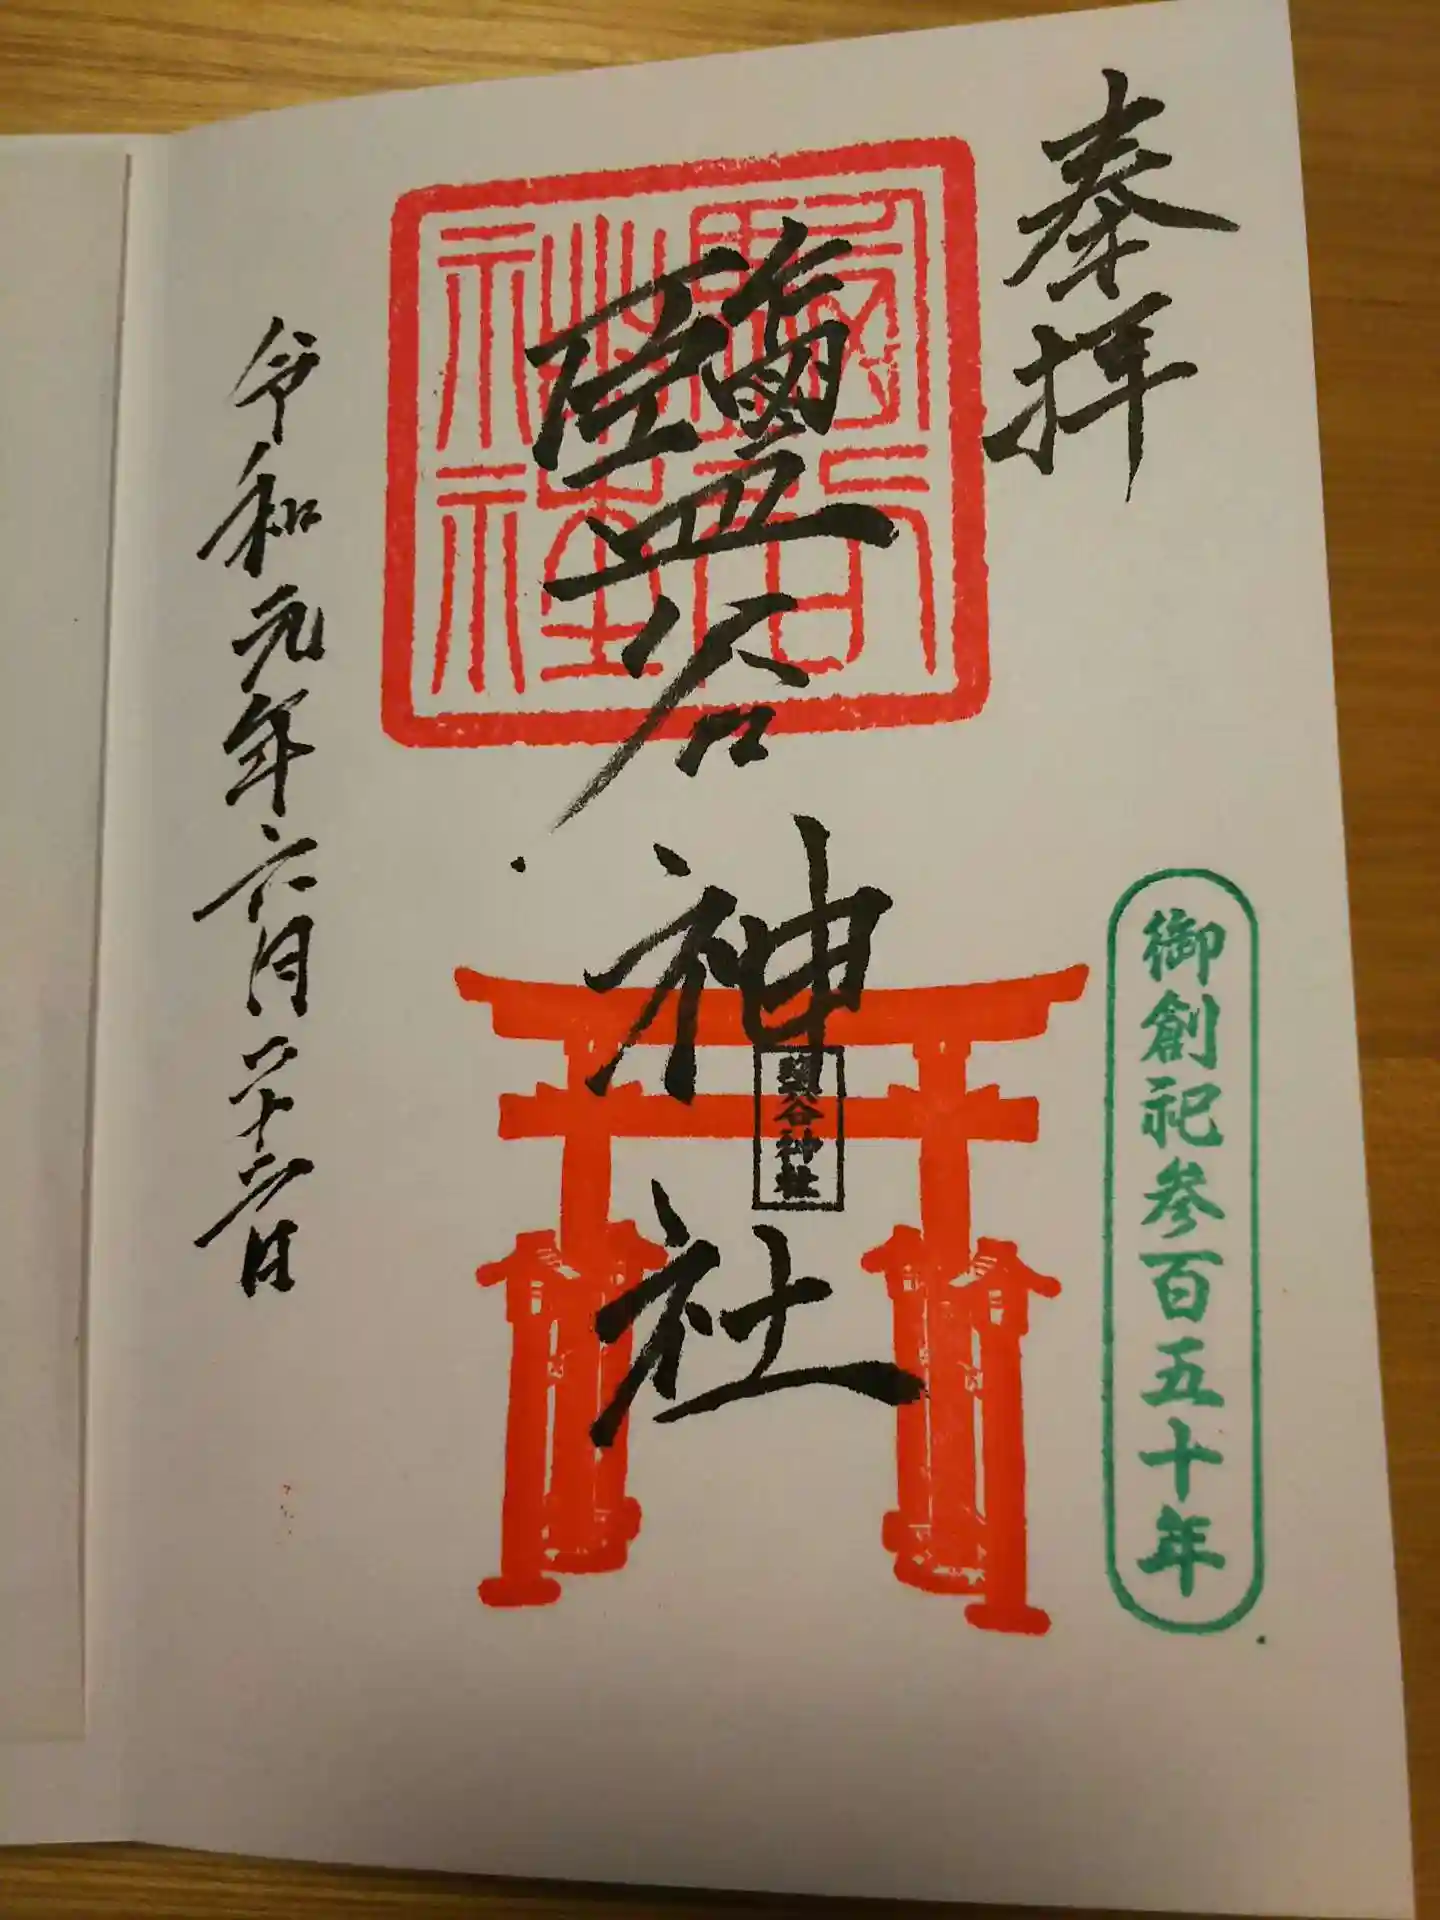 奉拝
鹽谷神社
鹽谷神社
鹽谷神社
御創祀参百五十年
令和元年六月二十六日